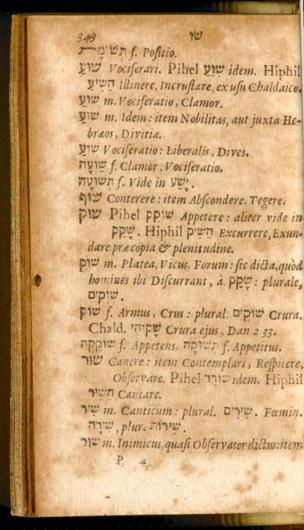 343 שו
תשומת f. Positio.
שוע Vociferari. Pihel שוע idem. Hiphil
השיע Illinere, Incrustare, ex usu Chaldaico.
שוע m. Vociferatio, Clamor.
שוע m. Idem: item Nobilitas, aut juxta He-
bræos, Divitiæ.
שוע Vociferatio: Liberalis, Dives.
שועה f. Clamor, Vociferatio.
תשועה f. Vide in ישע.
שוף Conterere: item Abscondere, Tegere.
שוק Pihel שוקק Appetere: aliter vide in
שקק. Hiphil השיק Excurrere, Exun-
dare præ copia & plenitudine.
שוק m. Platea, Vicus, Forum: sic dicta, quòd
homines ibi Discurrant, à שקק: plurale,
שוקים.
שוק f. Armus, Crus: plural. שוקים Crura.
Chald. שקוהי Crura ejus, Dan 2 33.
שוקקה f. Appetens. תשוקה f. Appetitus.
שור Canere: item Contemplari, Respicere,
Observare. Pihel שורר idem. Hiphil
השיר Cantare.
שיר m. Canticum: plural. שירים. Fœmin.
שירה, plur. שירות.
שור m. Inimicus, quasi Observator dictus: item
P 4